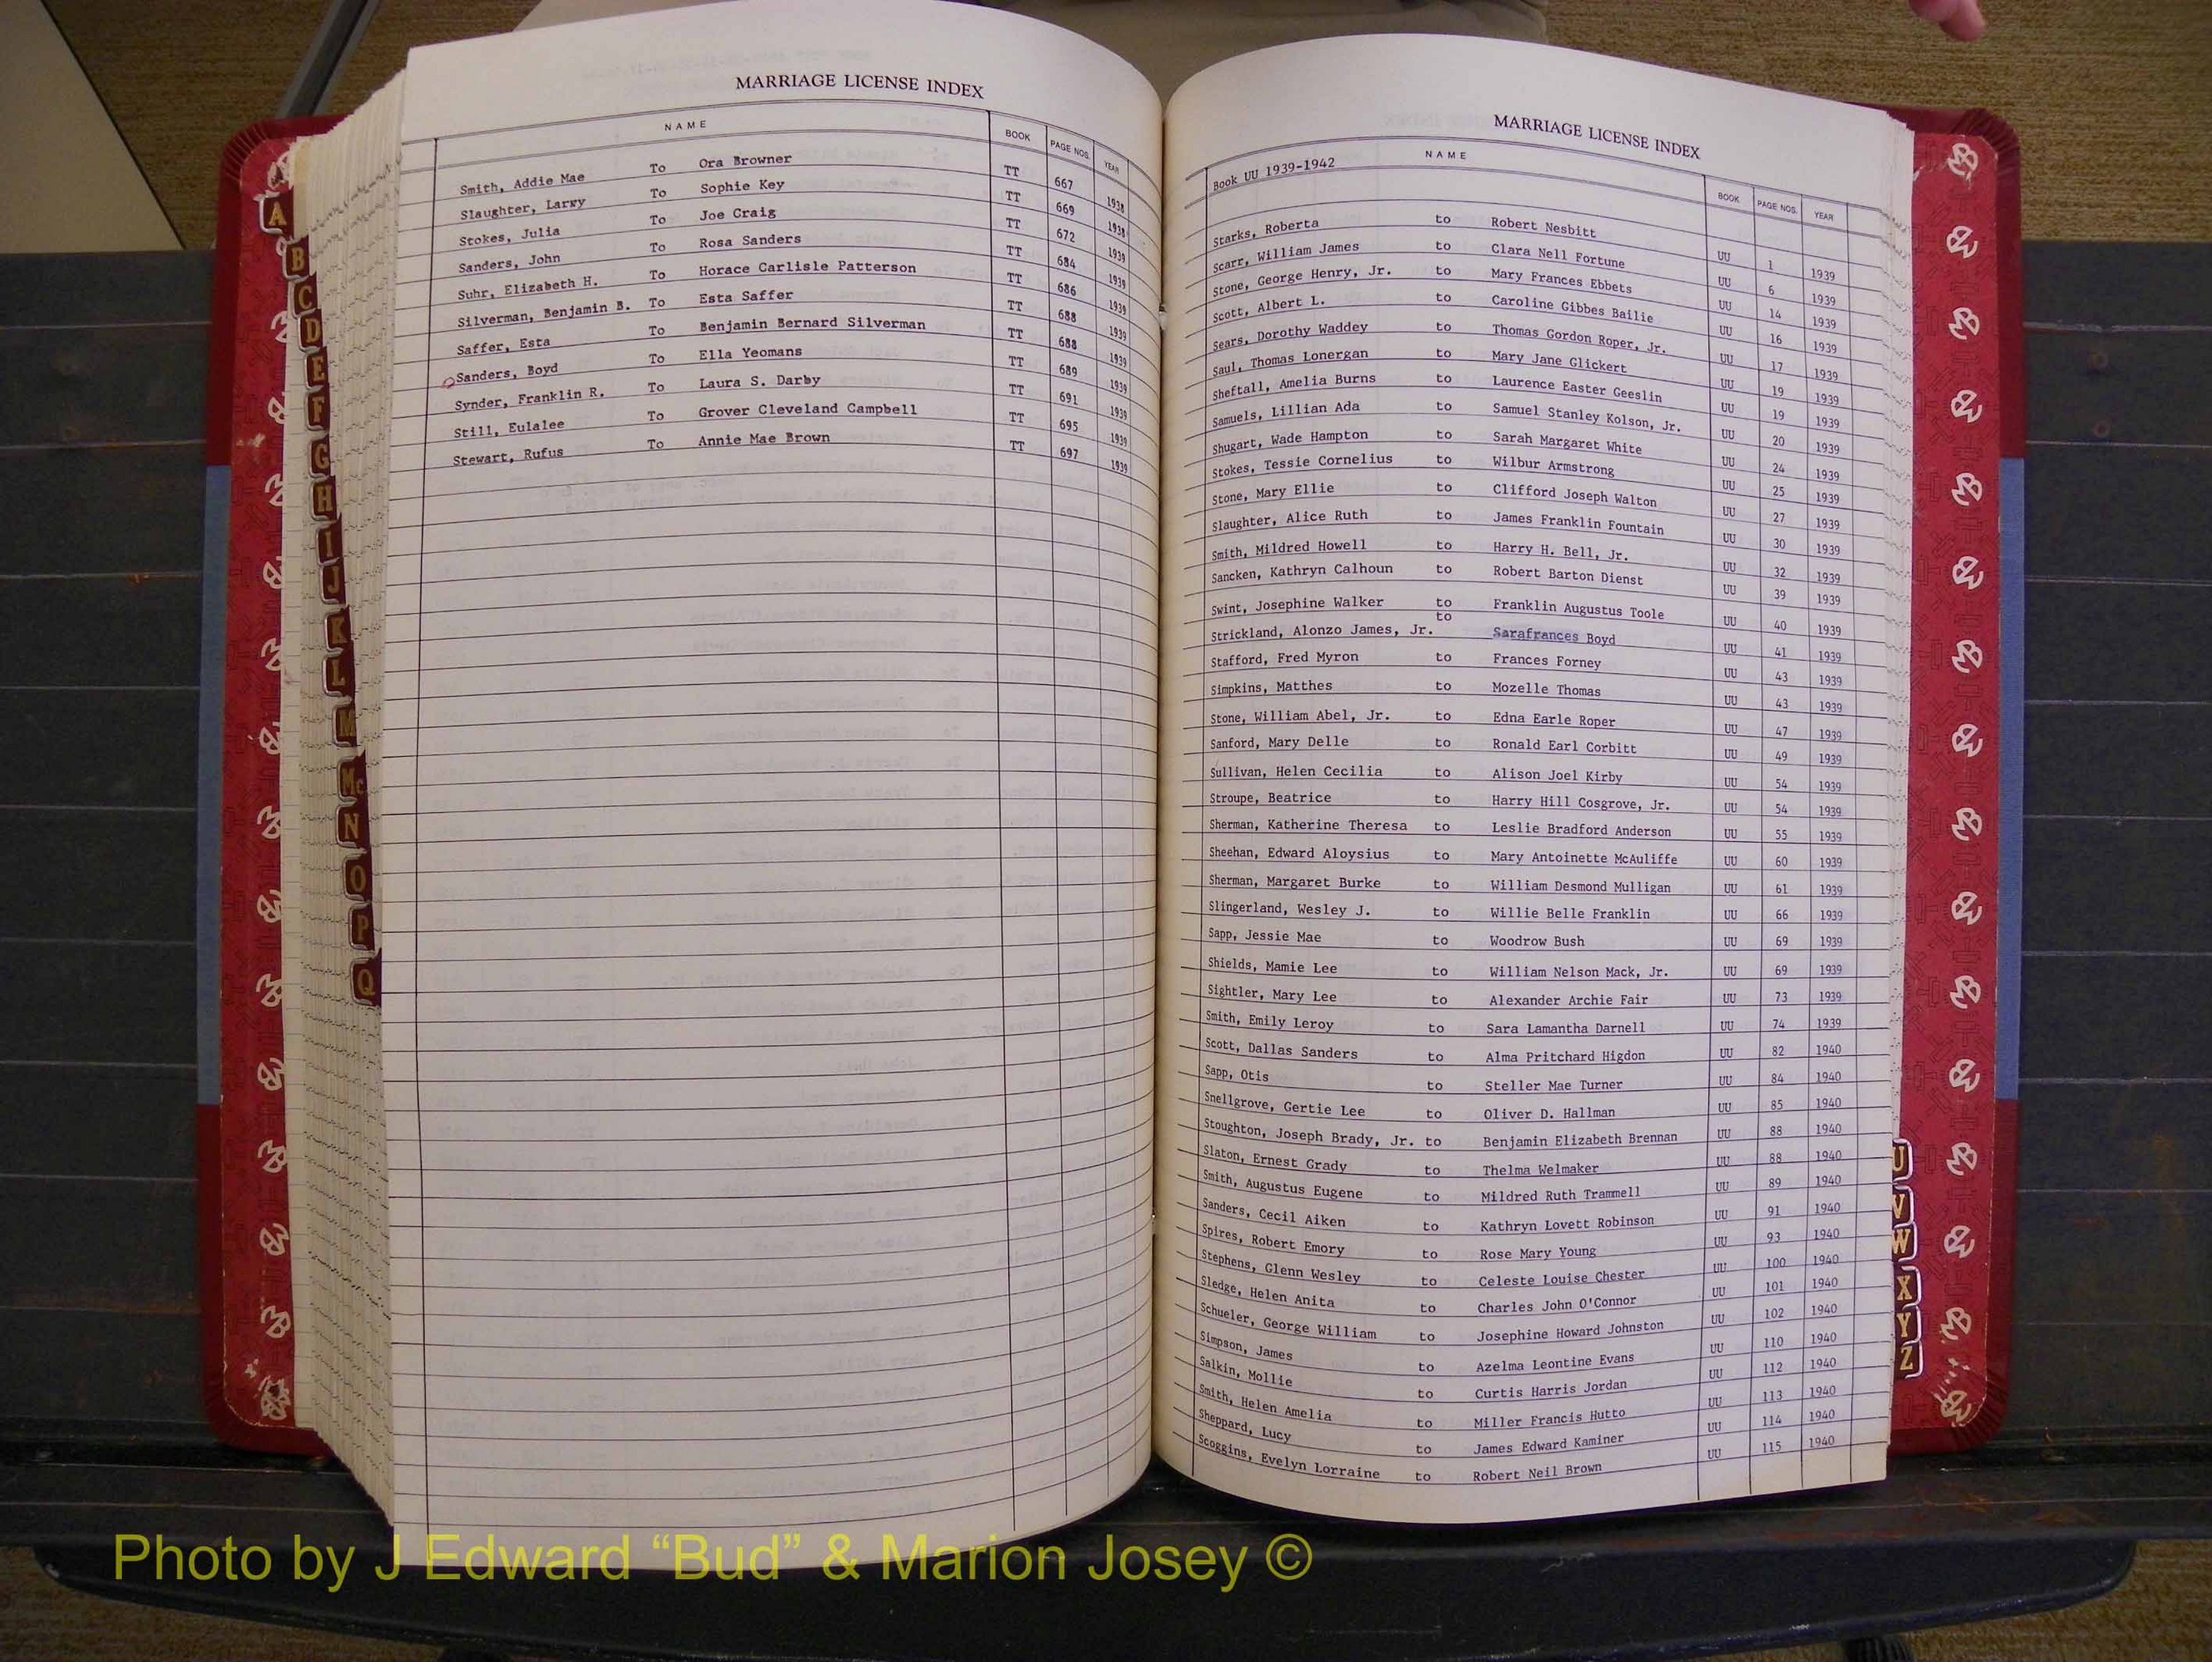 MARRIAGE LICENSE INDEX
NAME BOOK PAGE NOS. YEAR
Smith, Addie Mae To Ora Browner TT 667 1938
Slaughter, Larry To Sophie Key TT 669 1938
Stokes, Julia To Joe Craig TT 672 1939
Sanders, John To Rosa Sanders TT 684 1939
Suhr, Elizabeth H. To Horace Carlisle Patterson TT 686 1939
Silverman, Benjamin B. To Esta Saffer TT 688 1939
Saffer, Esta To Benjamin Bernard Silverman TT 688 1939
Sanders, Boyd To Ella Yeomans TT 689 1939
Synder, Franklin R. To Laura S. Darby TT 691 1939
Still, Eulalee To Grover Cleveland Campbell TT 695 1939
Stewart, Rufus To Annie Mae Brown TT 697 1939
A
B
C
D
E
F
G
H
I
J
K
L
M
Mc
N
O
P
Q
MARRIAGE LICENSE INDEX
NAME BOOK PAGE NOS. YEAR
Book UU 1939-1942
Starks, Roberta to Robert Nesbitt UU 1 1939
Scarr, William James to Clara Nell Fortune UU 6 1939
Stone, George Henry, Jr. to Mary Frances Ebbets UU 14 1939
Scott, Albert L. to Caroline Gibbes Bailie UU 16 1939
Sears, Dorothy Waddey to Thomas Gordon Roper, Jr. UU 17 1939
Saul, Thomas Lonergan to Mary Jane Glickert UU 19 1939
Sheftall, Amelia Burns to Laurence Easter Geeslin UU 19 1939
Samuels, Lillian Ada to Samuel Stanley Kolson, Jr. UU 20 1939
Shugart, Wade Hampton to Sarah Margaret White UU 24 1939
Stokes, Tessie Cornelius to Wilbur Armstrong UU 25 1939
Stone, Mary Ellie to Clifford Joseph Walton UU 27 1939
Slaughter, Alice Ruth to James Franklin Fountain UU 30 1939
Smith, Mildred Howell to Harry H. Bell, Jr. UU 32 1939
Sancken, Kathryn Calhoun to Robert Barton Dienst UU 39 1939
Swint, Josephine Walker to Franklin Augustus Toole UU 40 1939
Strickland, Alonzo James, Jr. to Sarafrances Boyd UU 41 1939
Stafford, Fred Myron to Frances Forney UU 43 1939
Simpkins, Matthes to Mozelle Thomas UU 43 1939
Stone, William Abel, Jr. to Edna Earle Roper UU 47 1939
Sanford, Mary Delle to Ronald Earl Corbitt UU 49 1939
Sullivan, Helen Cecilia to Alison Joel Kirby UU 54 1939
Stroupe, Beatrice to Harry Hill Cosgrove, Jr. UU 54 1939
Sherman, Katherine Theresa to Leslie Bradford Anderson UU 55 1939
Sheehan, Edward Aloysius to Mary Antoinette McAuliffe UU 60 1939
Sherman, Margaret Burke to William Desmond Mulligan UU 61 1939
Slingerland, Wesley J. to Willie Belle Franklin UU 66 1939
Sapp, Jessie Mae to Woodrow Bush UU 69 1939
Shields, Mamie Lee to William Nelson Mack, Jr. UU 69 1939
Sightler, Mary Lee to Alexander Archie Fair UU 73 1939
Smith, Emily Leroy to Sara Lamantha Darnell UU 74 1939
Scott, Dallas Sanders to Alma Pritchard Higdon UU 82 1940
Sapp, Otis to Steller Mae Turner UU 84 1940
Snellgrove, Gertie Lee to Oliver D. Hallman UU 85 1940
Stoughton, Joseph Brady, Jr. to Benjamin Elizabeth Brennan UU 88 1940
Slaton, Ernest Grady to Thelma Welmaker UU 88 1940
Smith, Augustus Eugene to Mildred Ruth Trammell UU 89 1940
Sanders, Cecil Aiken to Kathryn Lovett Robinson UU 91 1940
Spires, Robert Emory to Rose Mary Young UU 93 1940
Stephens, Glenn Wesley to Celeste Louise Chester UU 100 1940
Sledge, Helen Anita to Charles John O'Connor UU 101 1940
Schueler, George William to Josephine Howard Johnston UU 102 1940
Simpson, James to Azelma Leontine Evans UU 110 1940
Salkin, Mollie to Curtis Harris Jordan UU 112 1940
Smith, Helen Amelia to Miller Francis Hutto UU 113 1940
Sheppard, Lucy to James Edward Kaminer UU 114 1940
Scoggins, Evelyn Lorraine to Robert Neil Brown UU 115 1940
U
V
W
X
Y
Z
Photo by J Edward “Bud” & Marion Josey ©